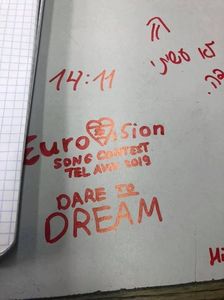 לא עשיתי
14:11
Eurovision
SONG CONTEST
TEL AVIV 2019
DARE TO
DREAM